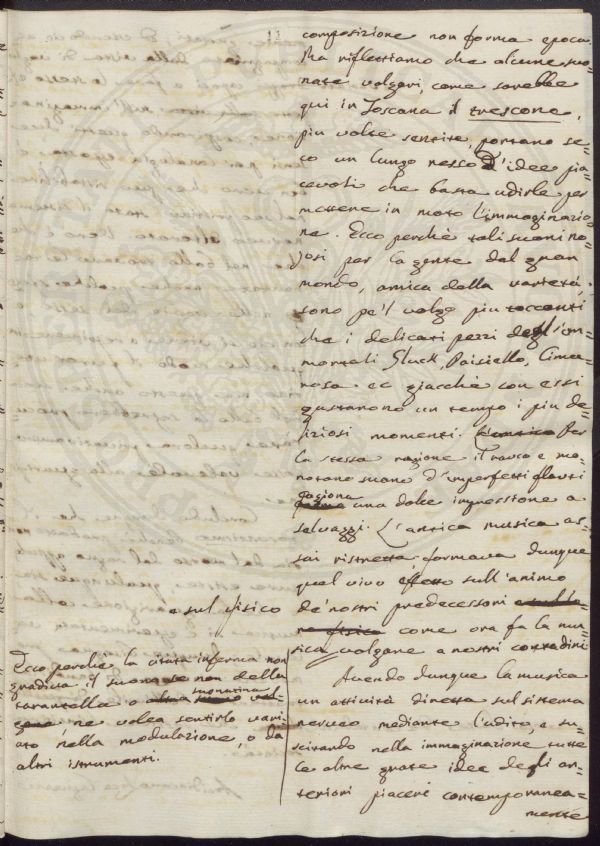 composizione non forma epoca.
Ma riflettiamo che alcune suo-
nate volgari, come sarebbe
qui in Toscana il trescone,
più volte sentite, portano se-
co un lungo nesso d'idee pia-
cevoli che basta udirle per
mettere in moto l'immaginazio-
ne. Ecco perchè tali suoni no-
josi per la gente del gran
mondo, amica della varietà,
sono pe'l volgo più toccanti
che i delicati pezzi degl'im-
mortali Gluck, Paisiello, Cima-
rosa ec giacchè con essi
gustarono un tempo i più de-
liziosi momenti. Per
la stessa ragione il rauco e mo-
notono suono d'imperfetti flauti
cagiona una dolce impressione a
selvaggi. L'antica musica as-
sai ristretta formava dunque
quel vivo effetto sull'animo
de' nostri predecessori
e sul fisico
come ora fa la mu-
sica volgare a nostri contadini
Avendo dunque la musica
un attività diretta sul sistema
nerveo mediante l'udito, e su-
scitando nella immaginazione tutte
le altre grate idee degli an-
teriori piaceri contemporanea-
mente
Ecco perchè la citata inferma non
gradiva il suono se non della
tarantella o suonatina vol-
gare ne volea sentirlo vari-
ato nella modulazione, o da
altri istrumenti.